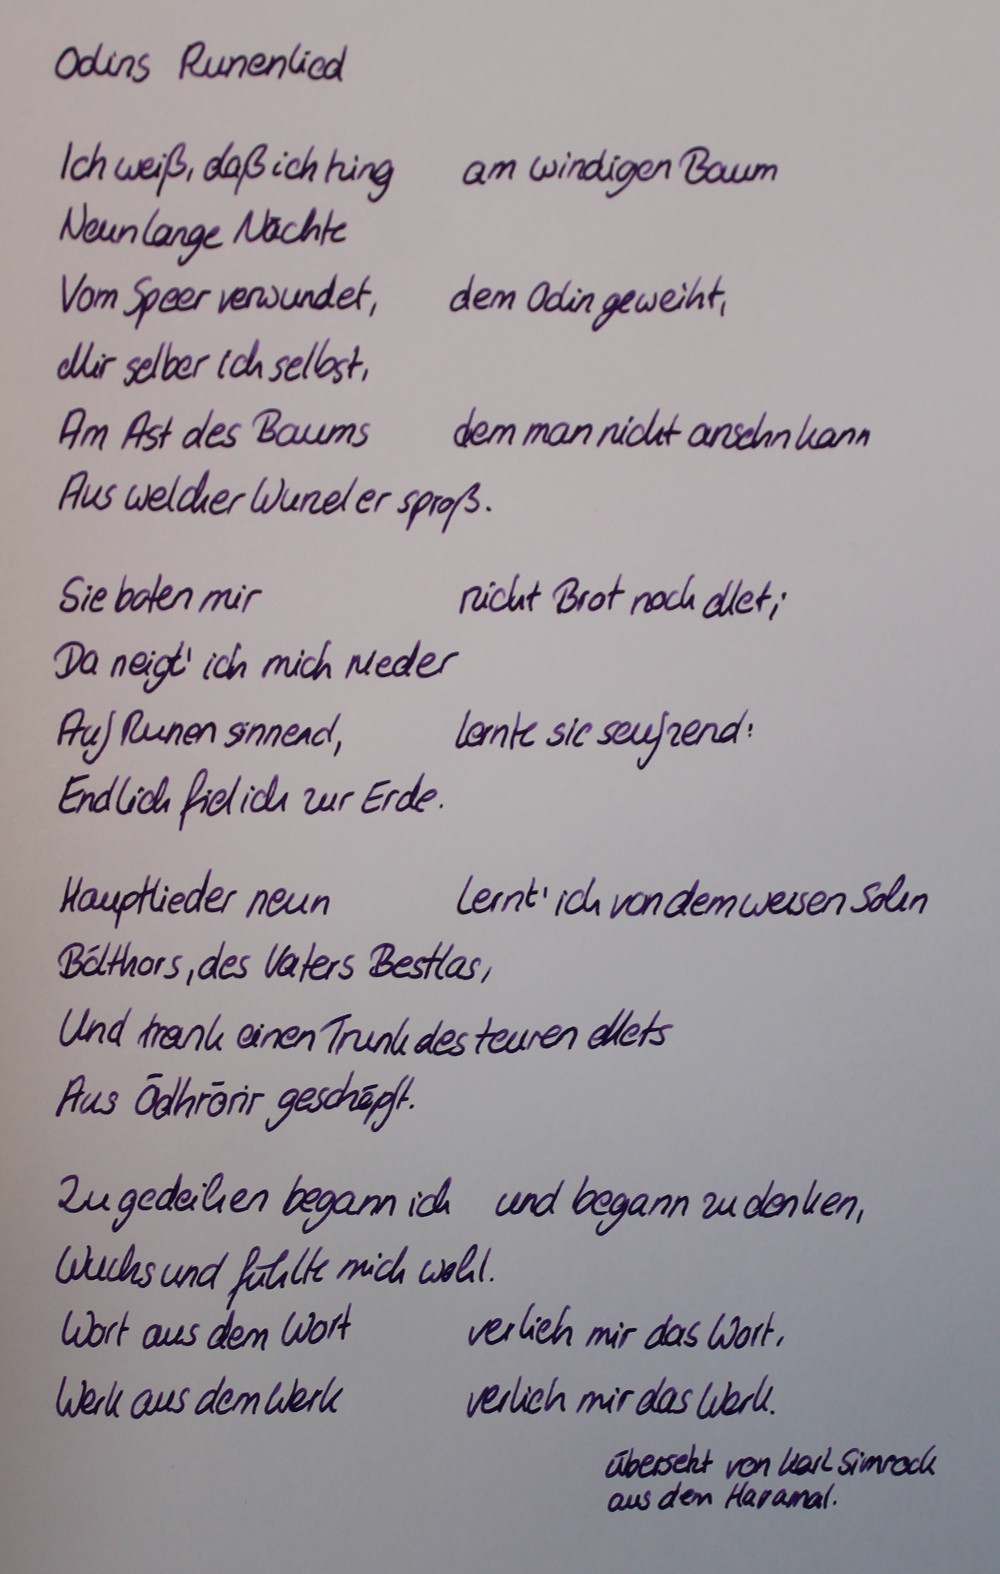 Odins Runenlied
Ich weiß, daß ich hing am windigen Baum
Neun lange Nächte
Vom Speer verwundet, dem Odin geweiht,
Mir selber ich selbst,
Am Ast des Baums dem man nicht ansehn kann
Aus welcher Wurzel er sproß.
Sie boten mir nicht Brot noch Met;
Da neigt' ich mich nieder
Auf Runen sinnend, lernte sie seufzend:
Endlich fiel ich zur Erde.
Hauptlieder neun Lernt' ich von dem weisen Sohn
Bölthors, des Vaters Bestlas,
Und trank einen Trunk des teuren Mets
Aus Ödhrörir geschöpft.
Zu gedeihen begann ich und begann zu denken,
Wuchs und fühlte mich wohl.
Wort aus dem Wort verlieh mir das Wort,
Werk aus dem Werk verlieh mir das Werk.
übersetzt von Karl Simrock
aus dem Havamal.